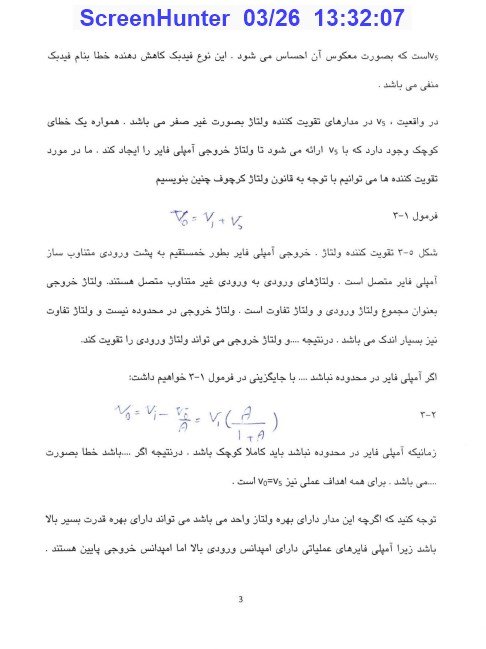 ScreenHunter 03/26 13:32:07
vsاست که بصورت معکوس آن احساس می شود . این نوع فیدبک کاهش دهنده خطا بنام فیدبک
منفی می باشد .
در واقعیت ، vs در مدارهای تقویت کننده ولتاژ بصورت غیر صفر می باشد . همواره یک خطای
کوچک وجود دارد که با vs ارائه می شود تا ولتاژ خروجی آمپلی فایر را ایجاد کند . ما در مورد
تقویت کننده ها می توانیم با توجه به قانون ولتاژ کرچوف چنین بنویسیم
فرمول ۱-۳
V0 = Vi + Vs
شکل ۵-۳ تقویت کننده ولتاژ . خروجی آمپلی فایر بطور خمستقیم به پشت ورودی متناوب ساز
آمپلی فایر متصل است . ولتاژهای ورودی به ورودی غیر متناوب متصل هستند. ولتاژ خروجی
بعنوان مجموع ولتاژ ورودی و ولتاژ تفاوت است . ولتاژ خروجی در محدوده نیست و ولتاژ تفاوت
نیز بسیار اندک می باشد . درنتیجه ....و ولتاژ خروجی می تواند ولتاژ ورودی را تقویت کند.
اگر آمپلی فایر در محدوده نباشد .... با جایگزینی در فرمول ۱-۳ خواهیم داشت:
۳-۲
V0 = Vi - V0/A = Vi (A/1+A)
زمانیکه آمپلی فایر در محدوده نباشد باید کاملا کوچک باشد . درنتیجه اگر ....باشد خطا بصورت
....می باشد . برای همه اهداف عملی نیز v0=vs است .
توجه کنید که اگرچه این مدار دارای بهره ولتاز واحد می باشد می تواند دارای بهره قدرت بسیر بالا
باشد زیرا آمپلی فایرهای عملیاتی دارای امپدانس ورودی بالا اما امپدانس خروجی پایین هستند .
3